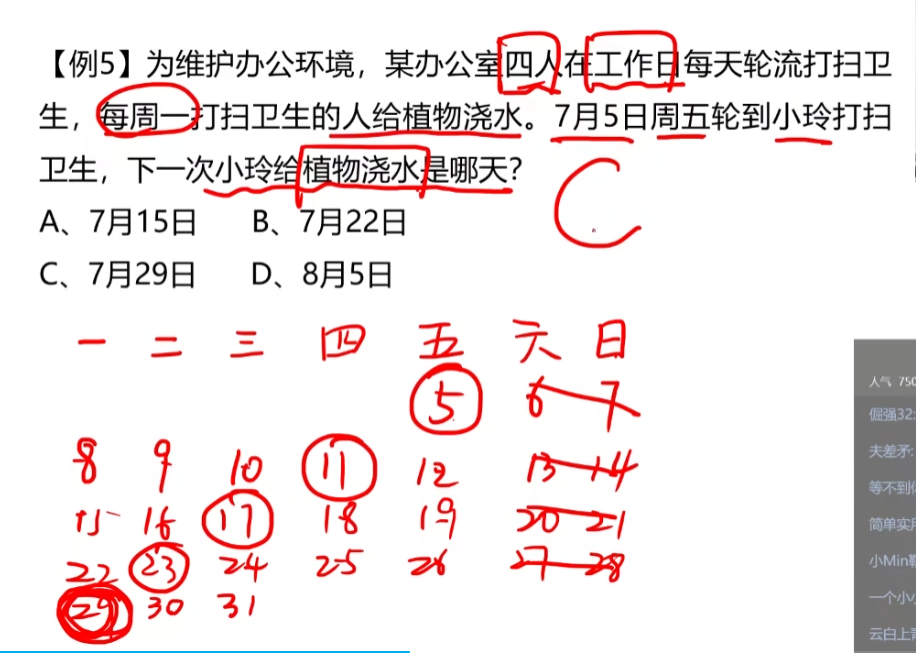 【例5】为维护办公环境，某办公室四人在工作日每天轮流打扫卫
生，每周一打扫卫生的人给植物浇水。7月5日周五轮到小玲打扫
卫生，下一次小玲给植物浇水是哪天？
C
A、7月15日 B、7月22日
C、7月29日 D、8月5日
一 二 三 四 五 六 日
5 6 7
8 9 10 11 12 13 14
15 16 17 18 19 20 21
22 23 24 25 26 27 28
29 30 31
人气 750
倔强32:
夫差矛:
等不到
简单实用
小Min
一个小
云白上